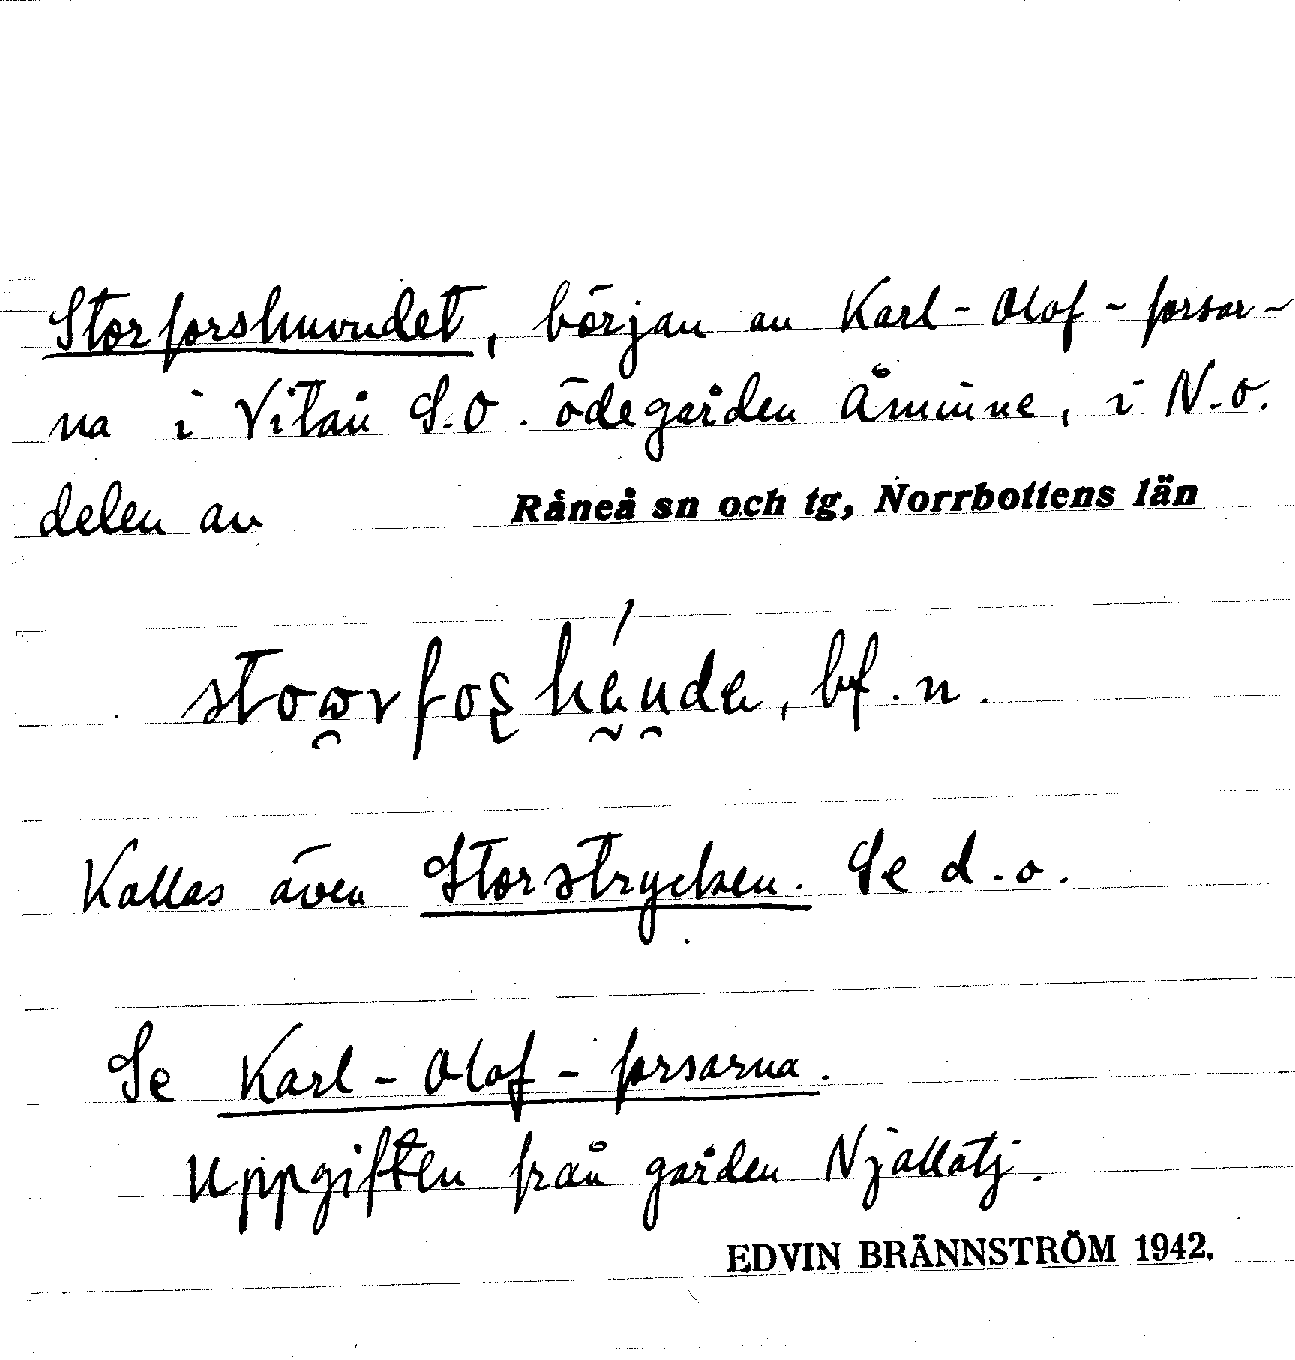 Storforshuvudet, början av Karl-Olof-forsar-
na i Vitån S.O. ödegården Åminne, i N.O.
delen av Råneå sn och tg, Norrbottens län
bf. n.
Kallas även Storstrycksen. Se d.o.
Se Karl-Olof-forsarna.
Uppgiften från gården Njallatj.
EDVIN BRÄNNSTRÖM 1942.